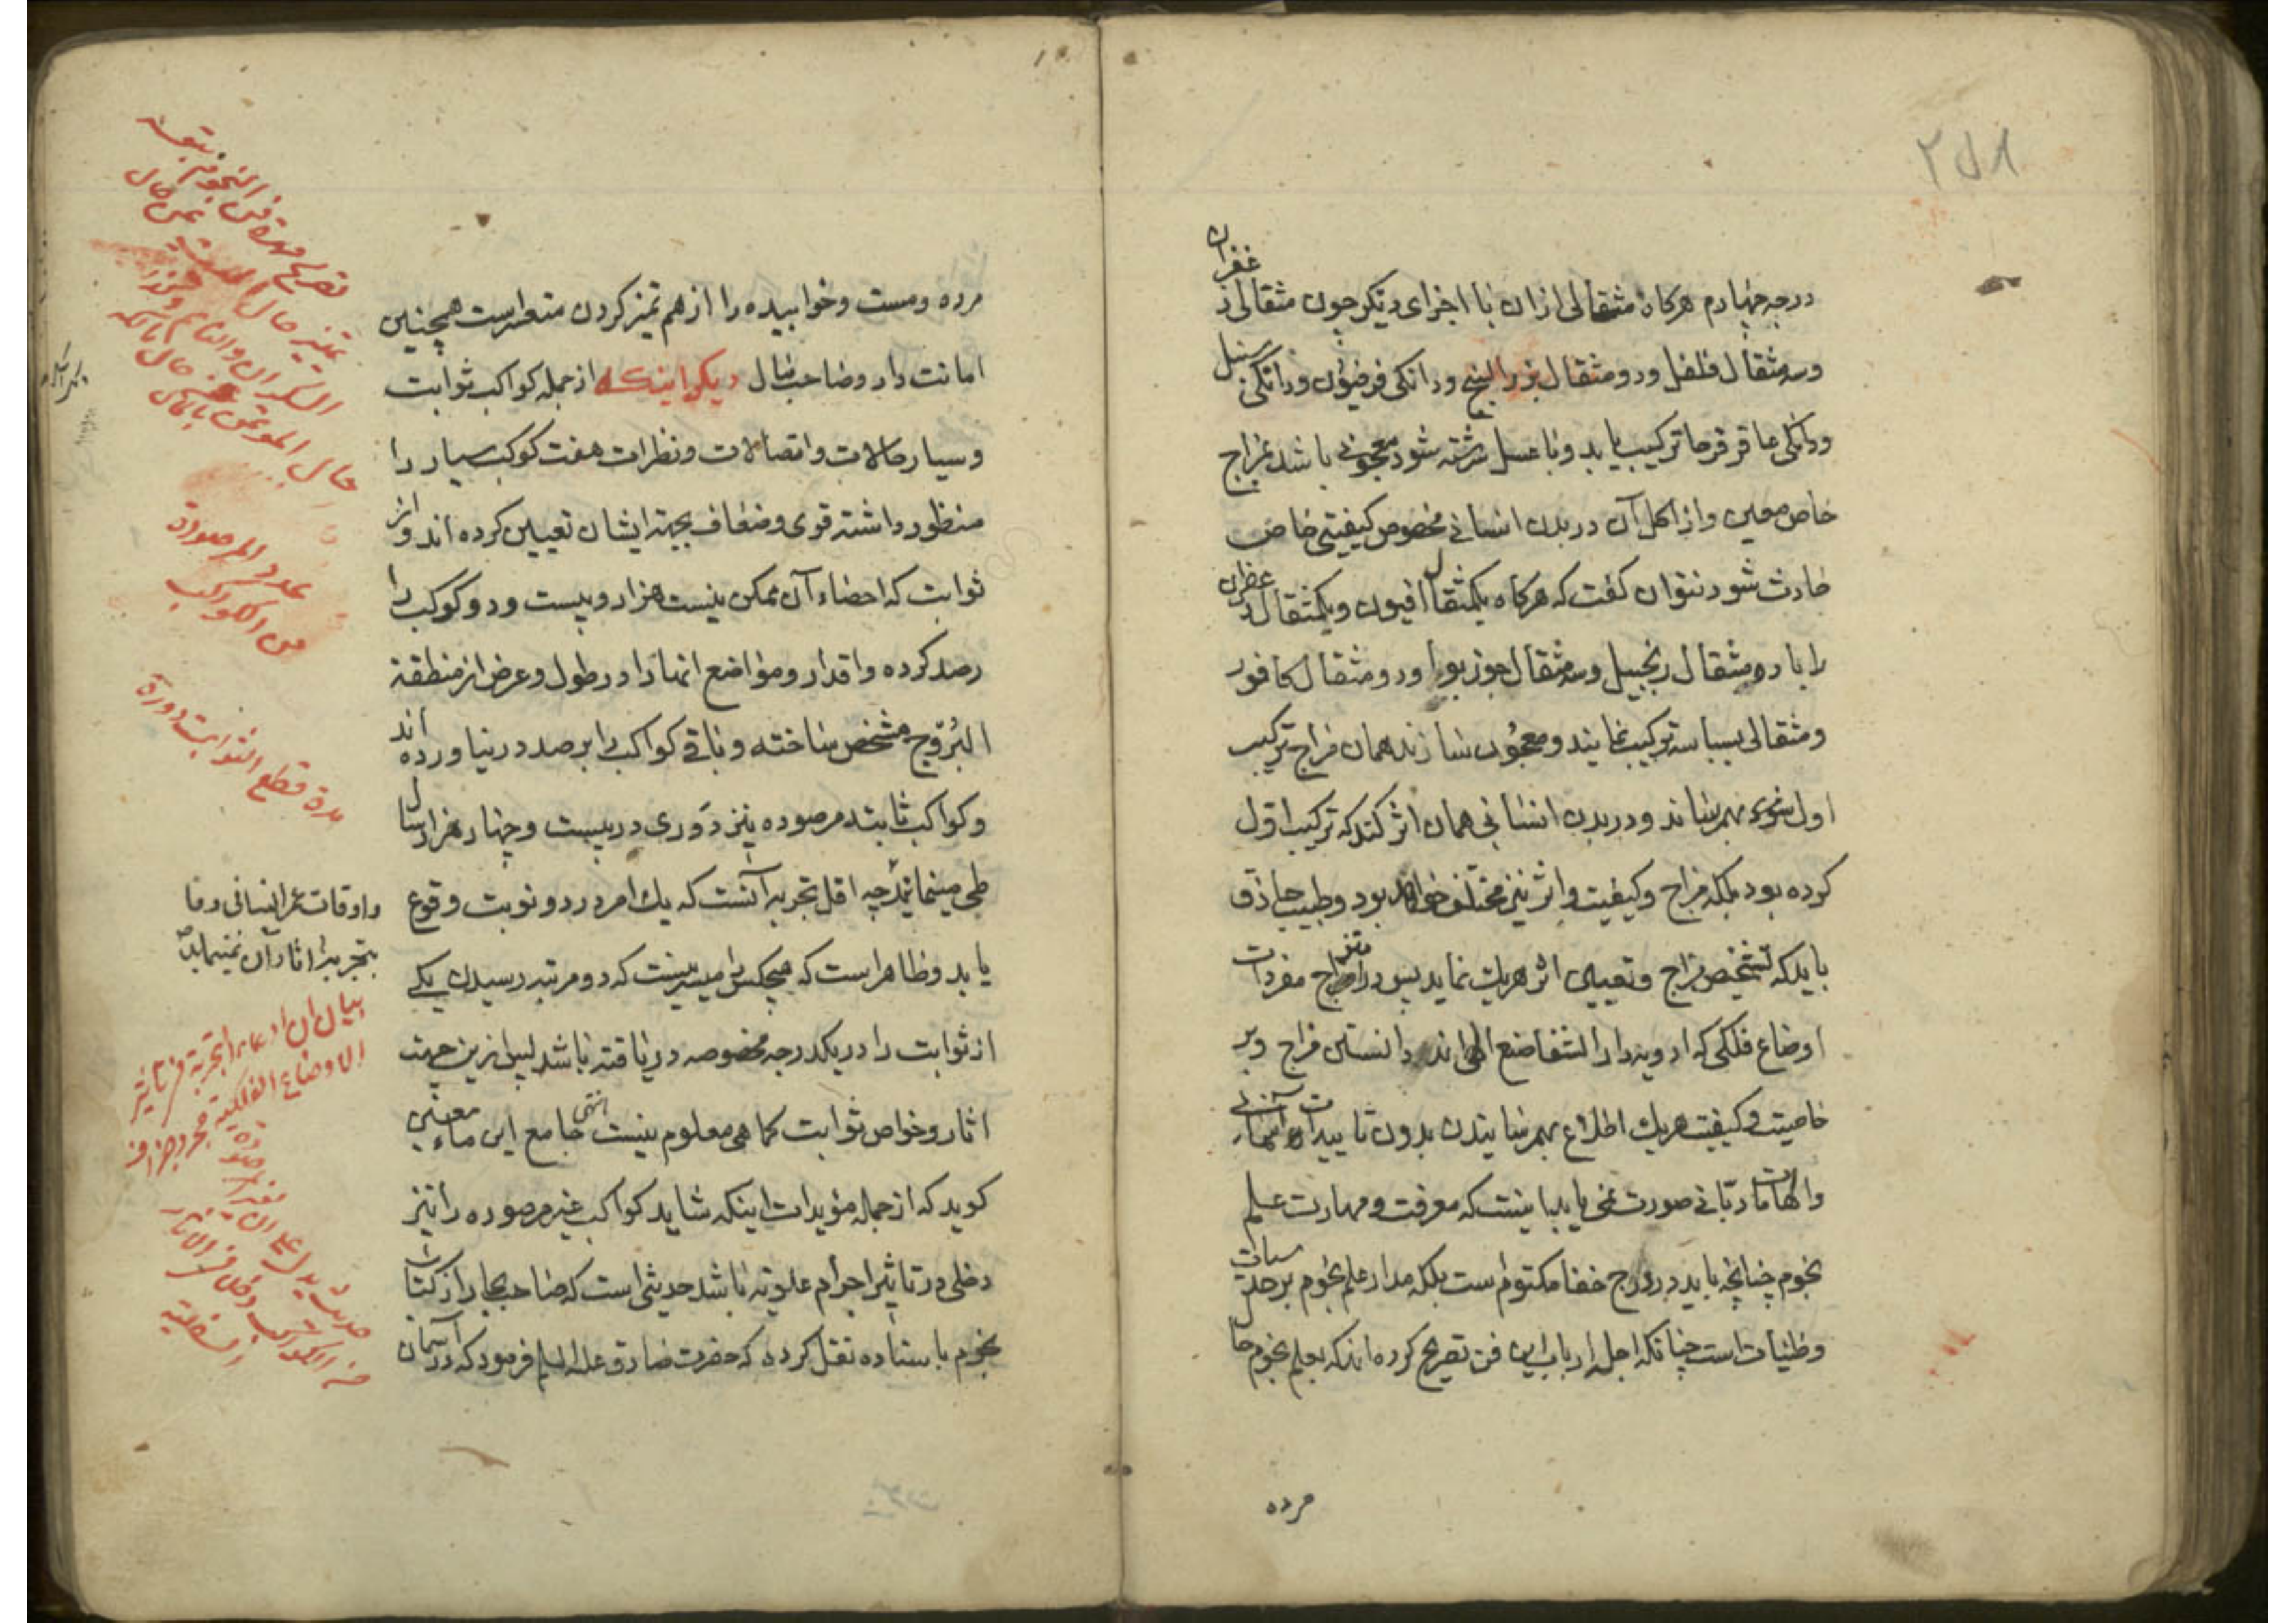 ۲۵۸
درجه چهارم هرکاه مثقالی ازان با اجزای دیکر چون مثقالی زعفران
وسه مثقال فلفل ودو مثقال بزر البنج ودانکی فرفیون ودانکی سنبل
ودانکی عاقرقرحا ترکیب یابد وبا عسل سرشته شود معجونی باشد بمزاج
خاص معین واز اکل آن در بدن انسانی مخصوص کیفیتی خاص
حادث شود نتوان کفت که هرکاه یکمثقال افیون ویکمثقال زعفران
را با دومثقال زنجبیل وسه مثقال جوز بوا ودو مثقال کافور
ومثقالی بسباسه ترکیب نمایند ومعجون سازند همان مزاج ترکیب
اول بهم رساند ودر بدن انسانی همان اثر کند که ترکیب اول
کرده بود بلکه مزاج وکیفیت واثر نیز مختلف خواهد بود وطبیب حاذق
باید که تشخیص مزاج وتعیین اثر هریک نماید پس در امتزاج مفردات
اوضاع فلکی که ادویه دار الشفا صنع الهی اند دانستن مزاج وبر
خاصیت وکیفیت هریک اطلاع بهم رسانیدن بدون تاییدات آسمانی
والهامات ربانی صورت نمی یابد اینست که معرفت ومهارت علم
نجوم چنانچه باید در درج خفا مکتوم است بلکه مدار علم نجوم بر حدسیات
وظنیات است چنانکه اجل ارباب این فن تصریح کرده اند که بعلم نجوم حال
مرده
مرده ومست وخوابیده را از هم تمیز کردن متعذر است همچنین
امانت دار وصاحب مال دیکر اینکه از جمله کواکب ثوابت
وسیار حالات واتصالات ونظرات هفت کوکب سیار را
منظور داشته قوی وضعاف بجهة ایشان تعیین کرده اند واز
ثوابت که احصاء آن ممکن نیست هزار وبیست ودو کوکب را
رصد کرده واقدار ومواضع انها را در طول وعرض از منطقة
البروج مشخص ساخته وباقی کواکب را برصد در نیاورده اند
وکواکب ثابته مرصوده نیز دوری در بیست وچهار هزار سال
طی مینمایند چه اقل تجربه آنست که یک امر در دو نوبت وقوع
یابد وظاهر است که هیچکس را میسر نیست که دو مرتبه رسیدن یکی
از ثوابت را در یکدرجه مخصوصه دریافته باشد پس ازین جهت
اثار وخواص ثوابت کما هی معلوم نیست انتهی جامع این ماء معین
کوید که از جمله مؤیدات اینکه شاید کواکب غیر مرصوده را نیز
دخلی در تاثیر اجرام علویه باشد حدیثی است که صاحب بحار از کتاب
نجوم باسناده نقل کرده که حضرت صادق علیه السلام فرمود که در آسمان
تصریح مهرة فن النجوم
تمیز حال المیت عن حال
السکران والنائم وکذا
حال المؤتمن عن حال المالک
عدد المرصودة
من الکواکب
مدة قطع الثوابت دورة
واوقات عمر انسانی وفا
بتجربه اثار آن نمینماید
بیان ان ادعاء التجربة فی تاثیر
الاوضاع الفلکیة مجرد جزاف
حدیث یدل علی ان لغیر المرصودة
من الکواکب دخل فی الاثار
السفلیة